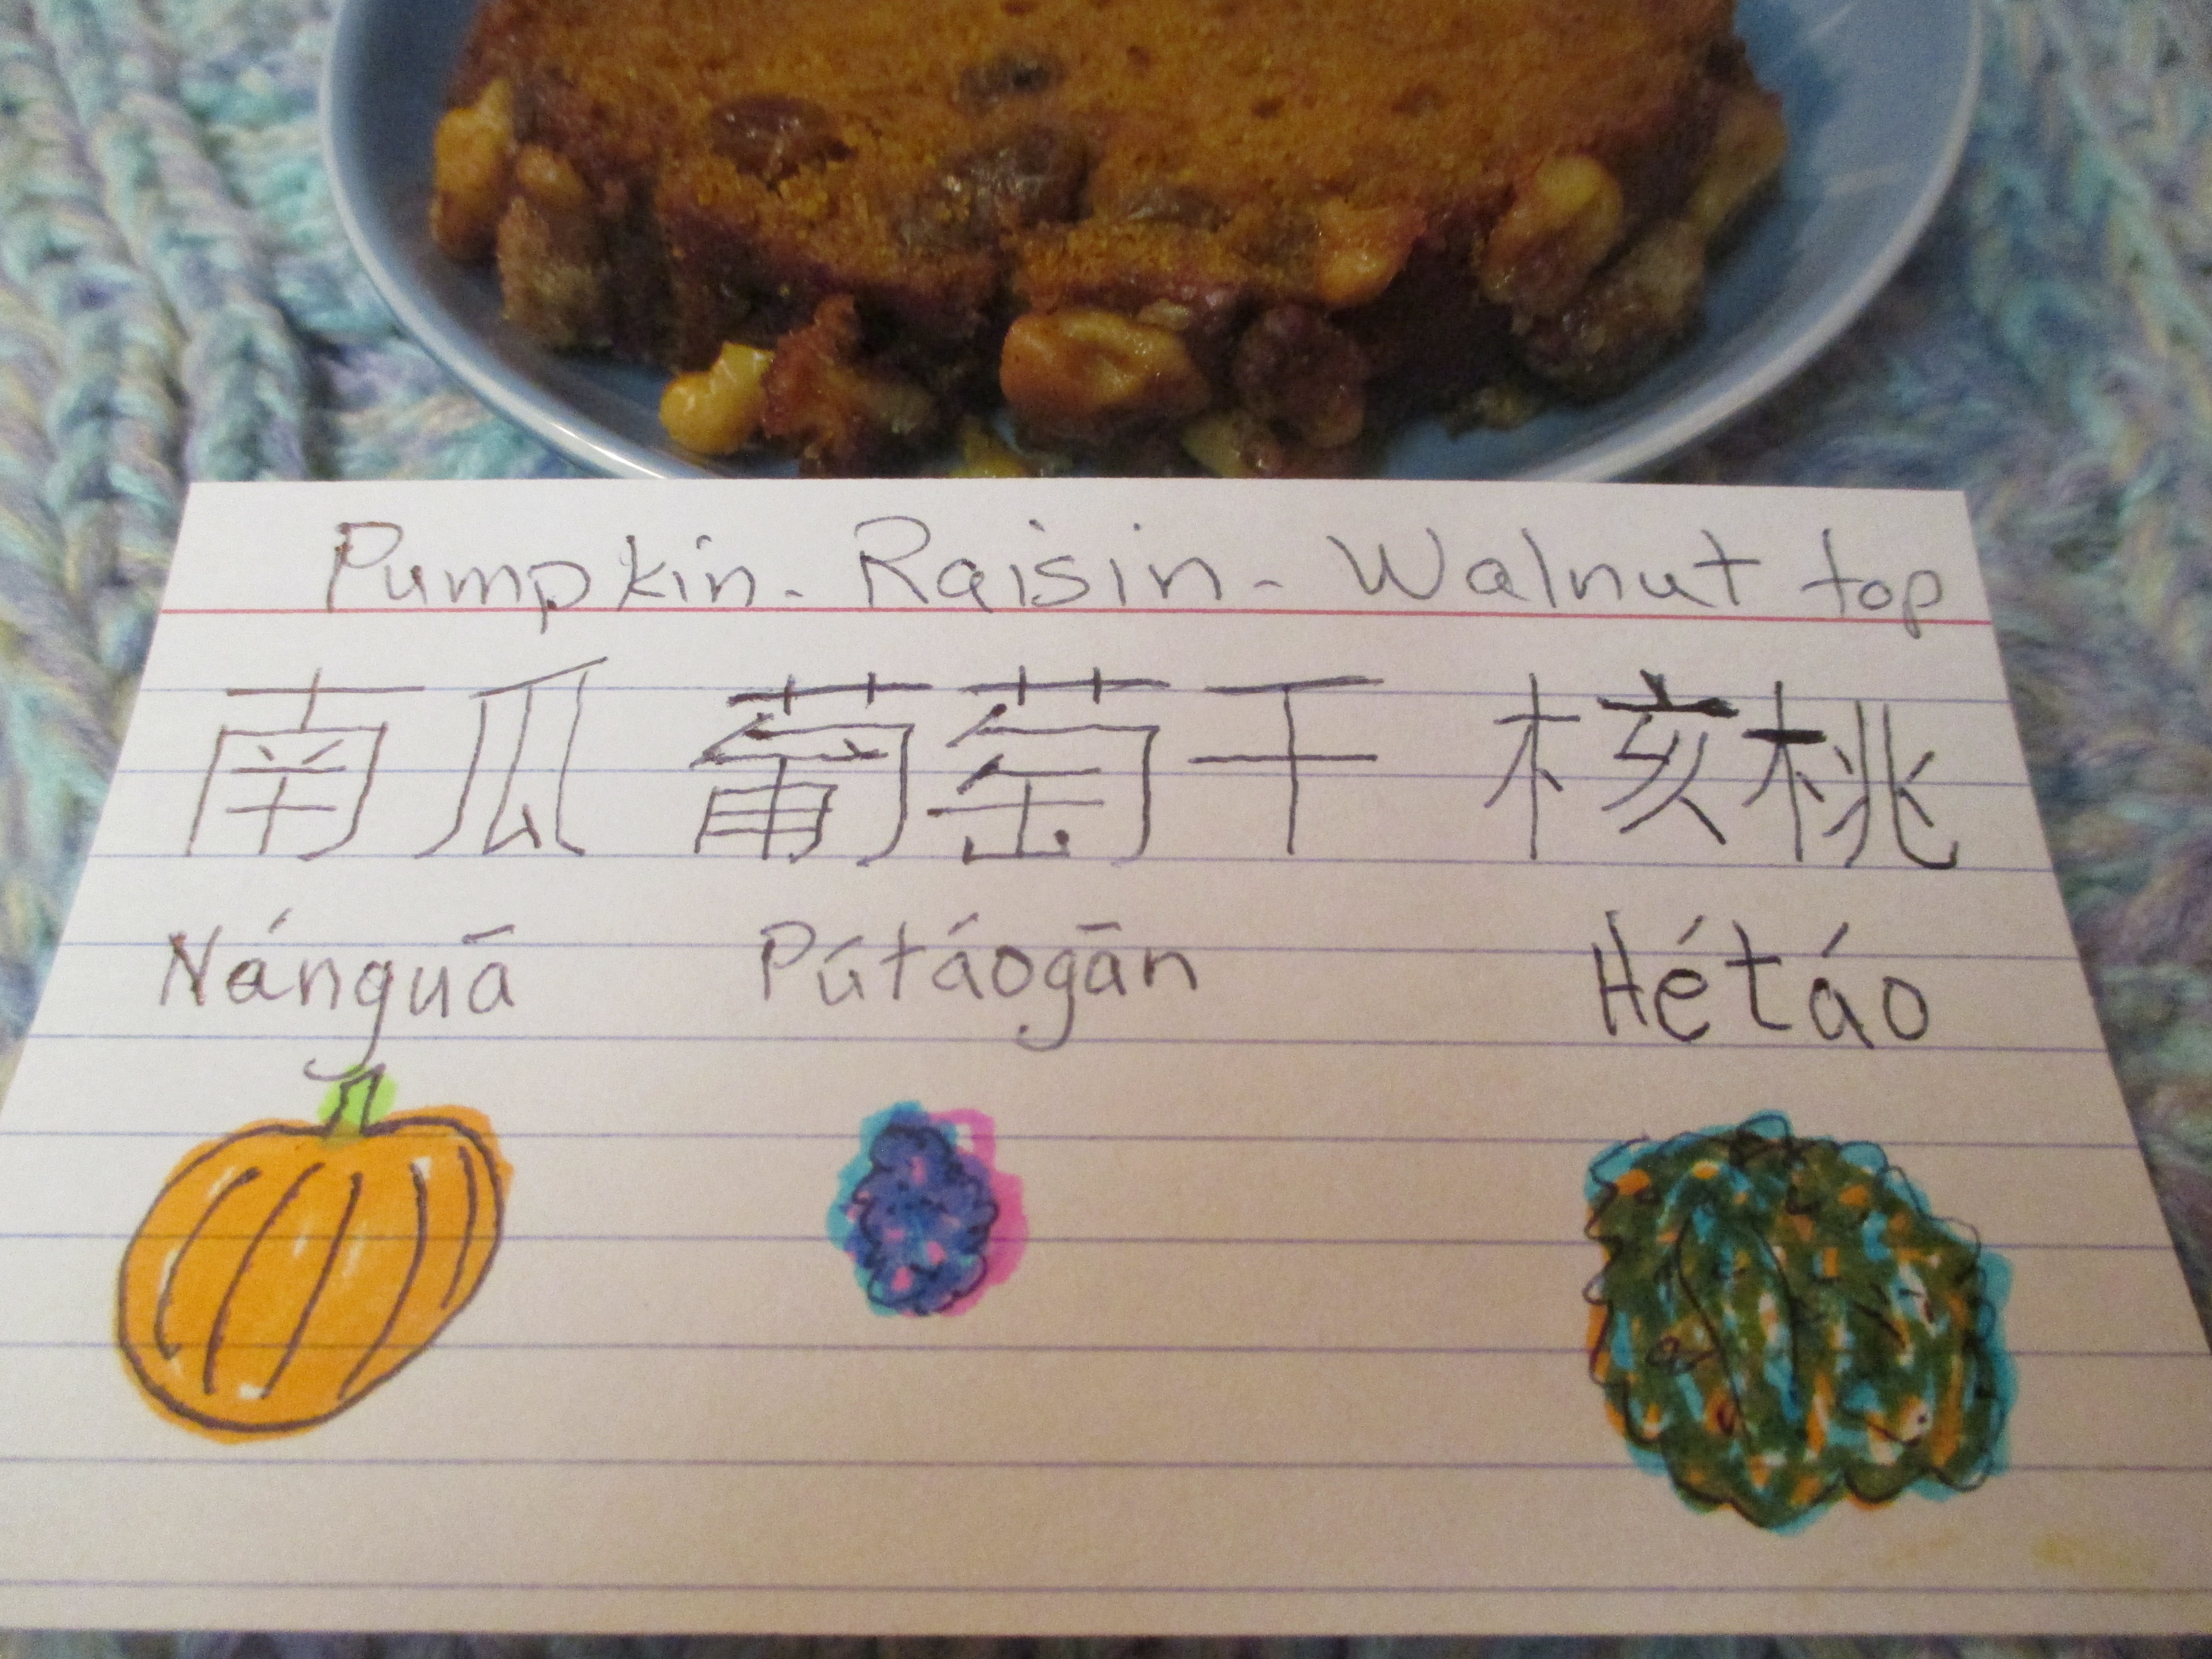 Pumpkin - Raisin - Walnut top
南瓜 葡萄干 核桃
Nánguā Pútáogān Hétáo